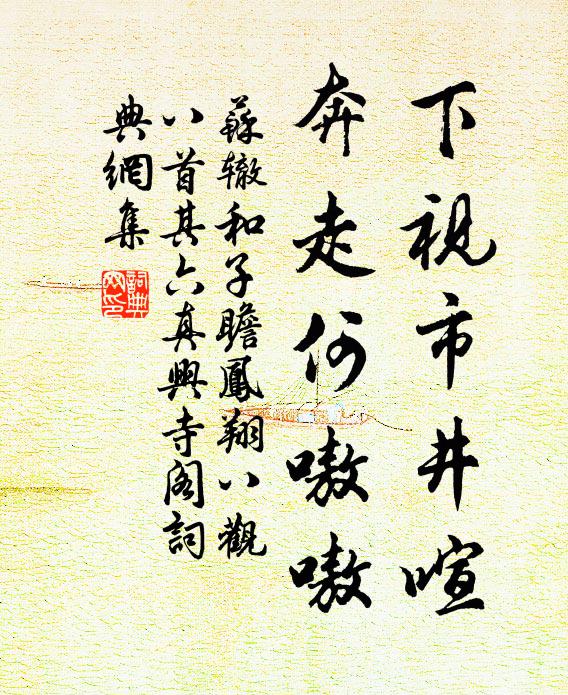 下視市井喧
奔走何嗷嗷
蘇辙和子瞻鳳翔八觀
八首其六真興寺閣詞
典網集
詞典